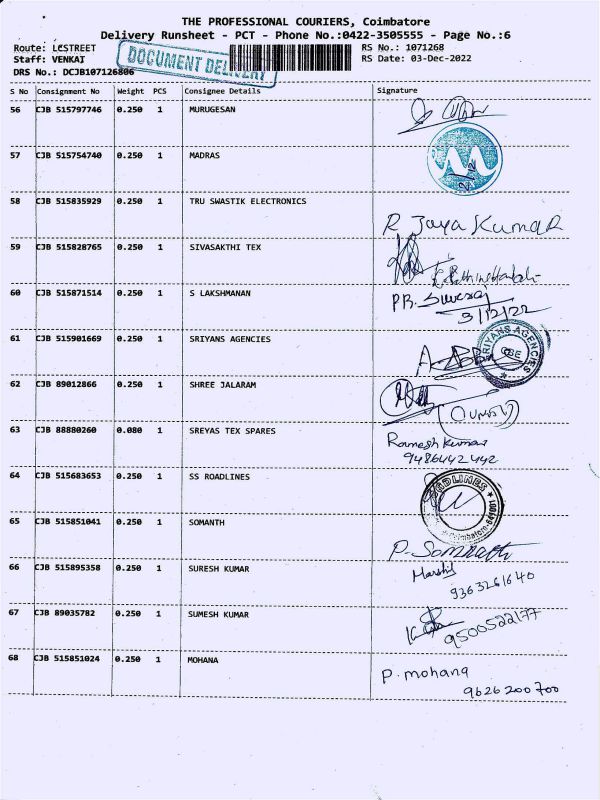 THE PROFESSIONAL COURIERS, Coimbatore
Delivery Runsheet - PCT - Phone No.:0422-3505555 - Page No.:6
Route: LCSTREET
Staff: VENKAI
DRS No.: DCJB107126806
DOCUMENT DELIVERY
RS No.: 1071268
RS Date: 03-Dec-2022
S No Consignment No Weight PCS Consignee Details Signature
56 CJB 515797746 0.250 1 MURUGESAN
57 CJB 515754740 0.250 1 MADRAS
58 CJB 515835929 0.250 1 TRU SWASTIK ELECTRONICS
R Jaya Kumar
59 CJB 515828765 0.250 1 SIVASAKTHI TEX
60 CJB 515871514 0.250 1 S LAKSHMANAN
PB.
3/12/22
61 CJB 515901669 0.250 1 SRIYANS AGENCIES
SRIYANS AGENCIES
CBE
62 CJB 89012866 0.250 1 SHREE JALARAM
63 CJB 88880260 0.080 1 SREYAS TEX SPARES
Ramesh Kumar
9486442442
64 CJB 515683653 0.250 1 SS ROADLINES
65 CJB 515851041 0.250 1 SOMANTH
P. Somnath
66 CJB 515895358 0.250 1 SURESH KUMAR
Harshil
9363261640
67 CJB 89035782 0.250 1 SUMESH KUMAR
9500522177
68 CJB 515851024 0.250 1 MOHANA
P. mohana
9626200700